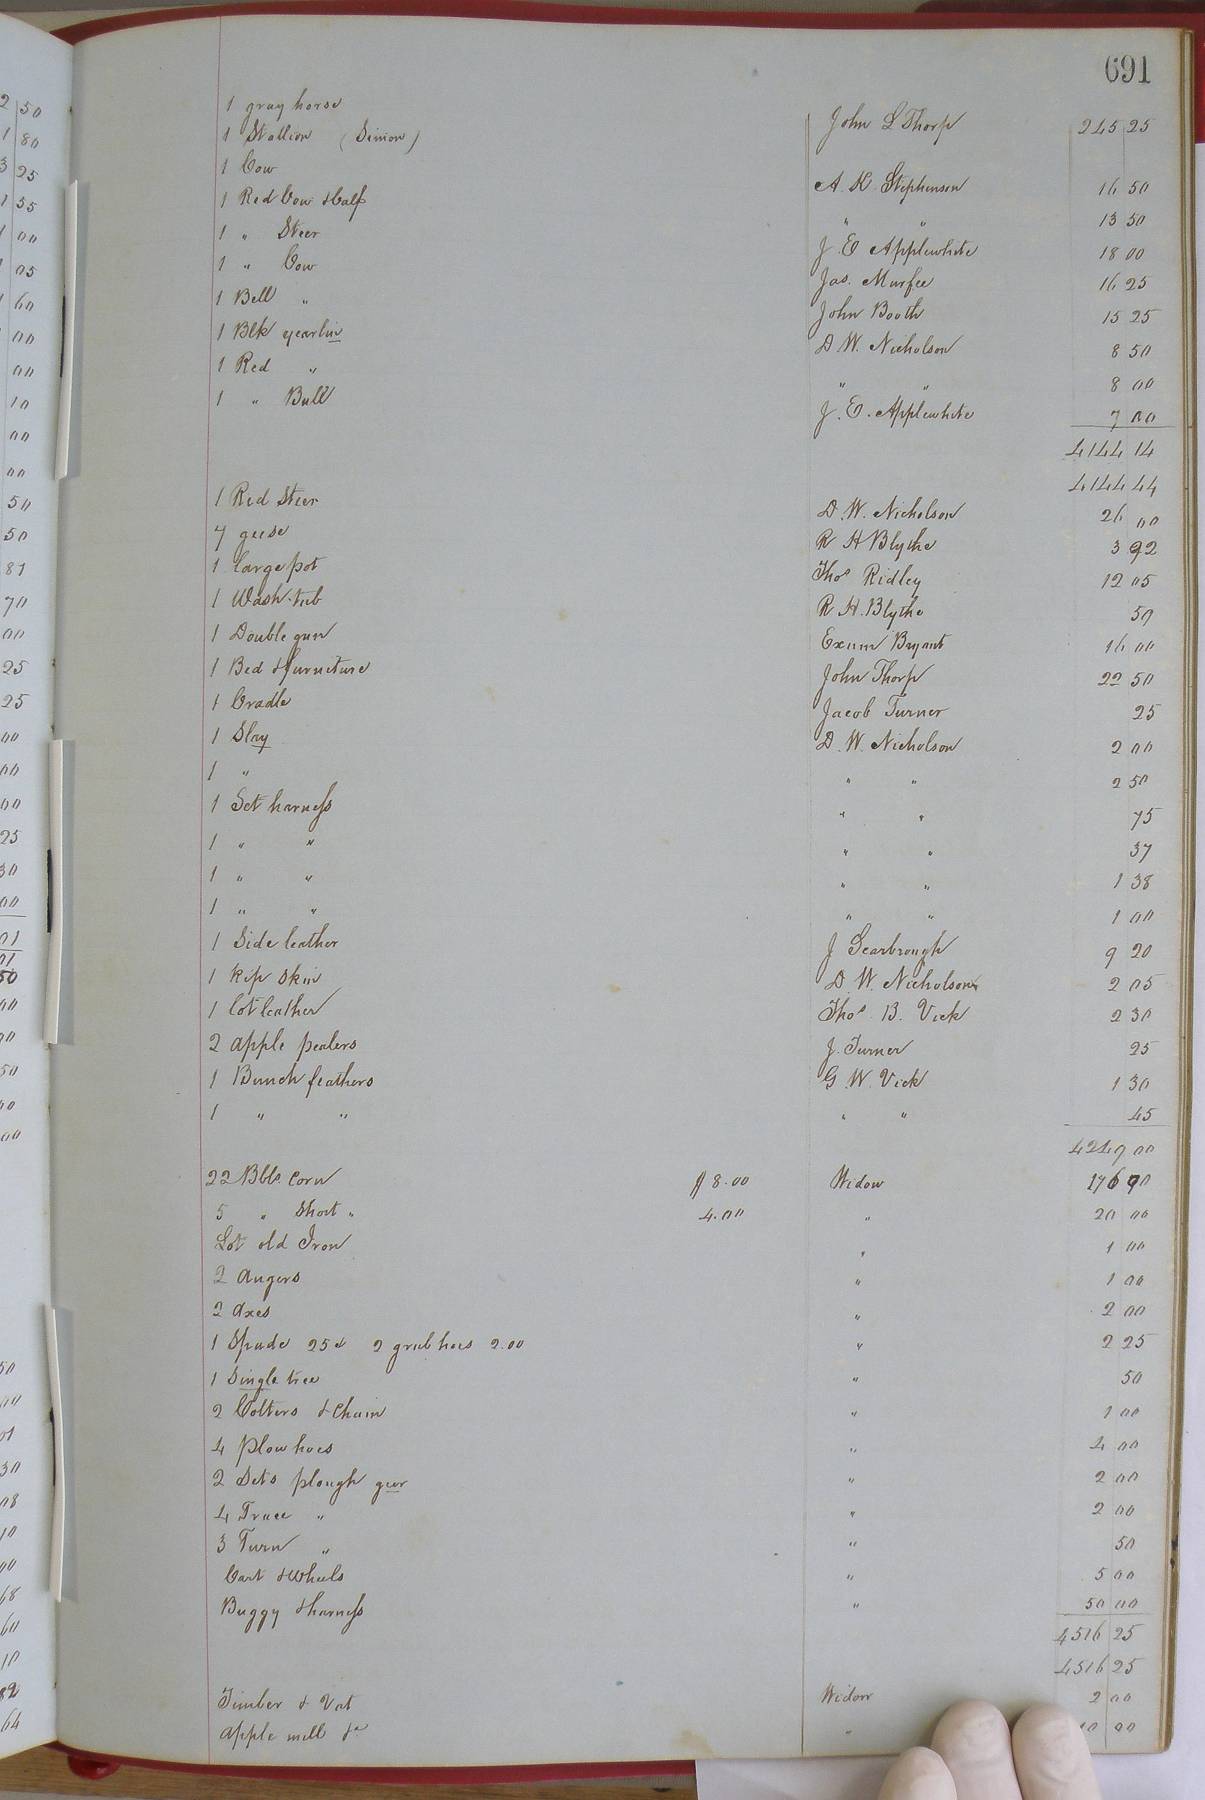 691
1 gray horse
1 Stallion (Simon) John L Thorp 245 25
1 Cow
1 Red Cow & Calf A. K. Stephenson 16 50
1 " Steer " " 13 50
1 " Cow J. E Applewhite 18 00
1 Bell " Jas. Murfee 16 25
1 Blk yearlin John Booth 15 25
1 Red " D. W. Nicholson 8 50
1 " Bull " " 8 00
J. E. Applewhite 7 00
4144 14
4144 44
1 Red Steer D. W. Nicholson 26 00
7 geese R H Blythe 3 92
1 large pot Thos Ridley 12 05
1 Wash-tub R. H. Blythe 50
1 Double gun Exum Bryant 16 00
1 Bed & furniture John Thorp 22 50
1 Cradle Jacob Turner 25
1 Slay D. W. Nicholson 2 00
1 " " " 2 50
1 Set harness " " 75
1 " " " " 37
1 " " " " 1 38
1 " " " " 1 00
1 Side leather J Scarbrough 9 20
1 kip Skin D. W. Nicholson 2 05
1 lot leather Thos B. Vick 2 30
2 apple pealers J. Turner 25
1 Bunch feathers G. W. Vick 1 30
1 " " " " 45
4249 00
22 Bbls Corn $8.00 Widow 176 00
5 " Short " 4.00 " 20 00
Lot old Iron " 1 00
2 Augers " 1 00
2 Axes " 2 00
1 Spade 25¢ 2 grub hoes 2.00 " 2 25
1 Single tree " 50
2 Colters & Chain " 1 00
4 Plow hoes " 4 00
2 Sets plough gear " 2 00
4 Trace " " 2 00
3 Turn " " 50
Cart & Wheels " 5 00
Buggy & harness " 50 00
4516 25
4516 25
Timber & Vat Widow 2 00
apple mill &c " 10 00